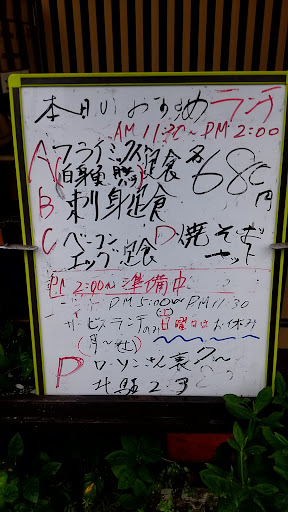 本日のおすすめランチ
AM 11:30〜PM 2:00
A フライミックス定食 各680円
白身魚
B 刺身定食
C ベーコンエッグ定食 D 焼そばセット
PM 2:00〜準備中
PM 5:00〜PM 11:30
サービスランチのみ 日曜日はお休み
(月〜土)
P ローソンさん裏